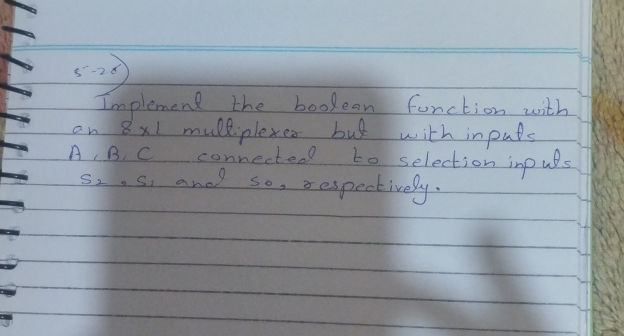 5-28)
Implement the boolean function with
an 8x1 multiplexer but with inputs
A, B, C connected to selection inputs
S2, S1 and so, respectively.